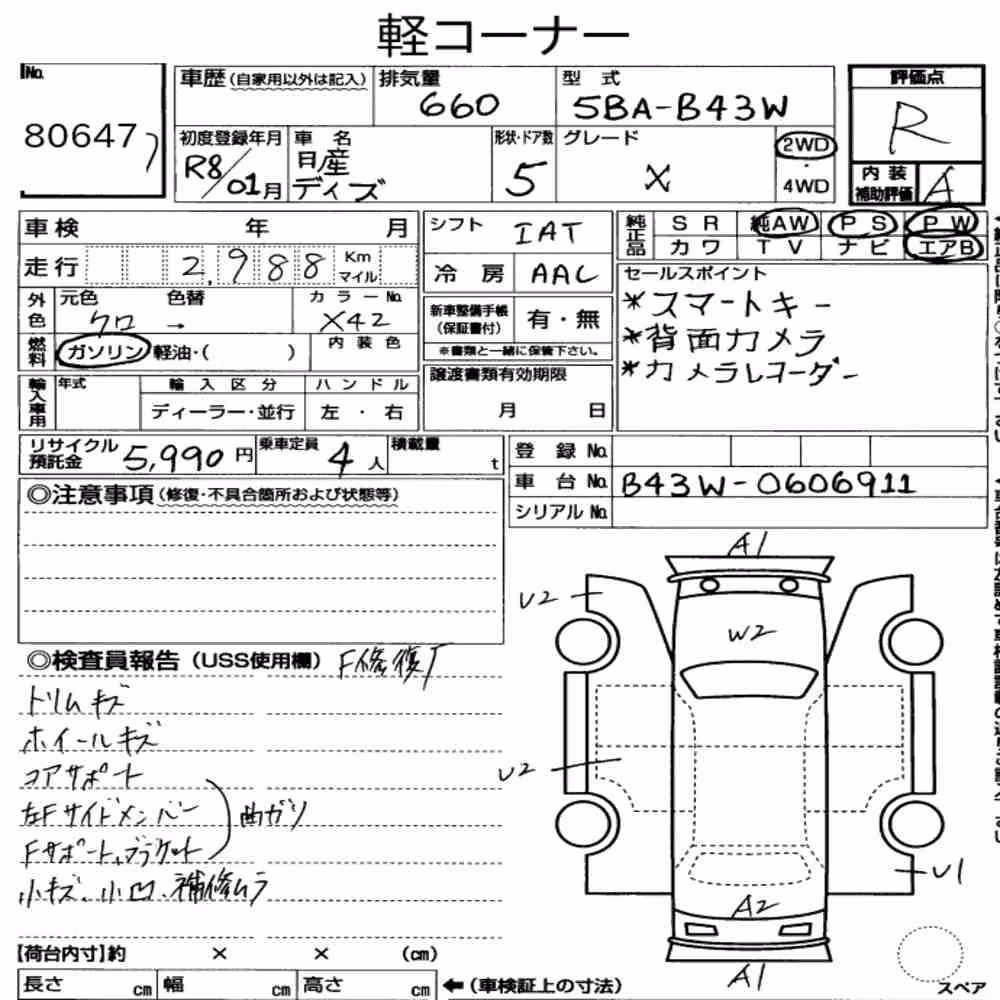 軽コーナー
No.
80647
車歴(自家用以外は記入)
排気量
660
型式
5BA-B43W
評価点
R
初度登録年月
R8/01月
車名
日産
デイズ
形状・ドア数
5
グレード
X
2WD
・
4WD
内装
補助評価
A
車検 年 月
シフト
IAT
純正品
SR 純AW PS PW
カワ TV ナビ エアB
走行 2,988 Km
マイル
冷房 AAC
セールスポイント
*スマートキー
*背面カメラ
*カメラレコーダー
外色
元色 色替
クロ →
カラーNo.
X42
新車整備手帳
(保証書付)
有・無
※書類と一緒に保管下さい。
燃料
ガソリン 軽油・( )
内装色
輸入車用
年式
輸入区分
ディーラー・並行
ハンドル
左・右
譲渡書類有効期限
月 日
リサイクル
預託金
5,990円
乗車定員
4人
積載量
t
登録No.
車台No. B43W-0606911
シリアルNo.
◎注意事項(修復・不具合箇所および状態等)
A1
U2
W2
◎検査員報告(USS使用欄) F修復有
トリムキズ
ホイールキズ
コアサポート
左Fサイドメンバー
曲ガリ
Fサポート、ブラケット
小キズ、小凹、補修ムラ
U2
U1
A2
A1
【荷台内寸】約 × × (cm)
長さ cm 幅 cm 高さ cm
←(車検証上の寸法)
スペア